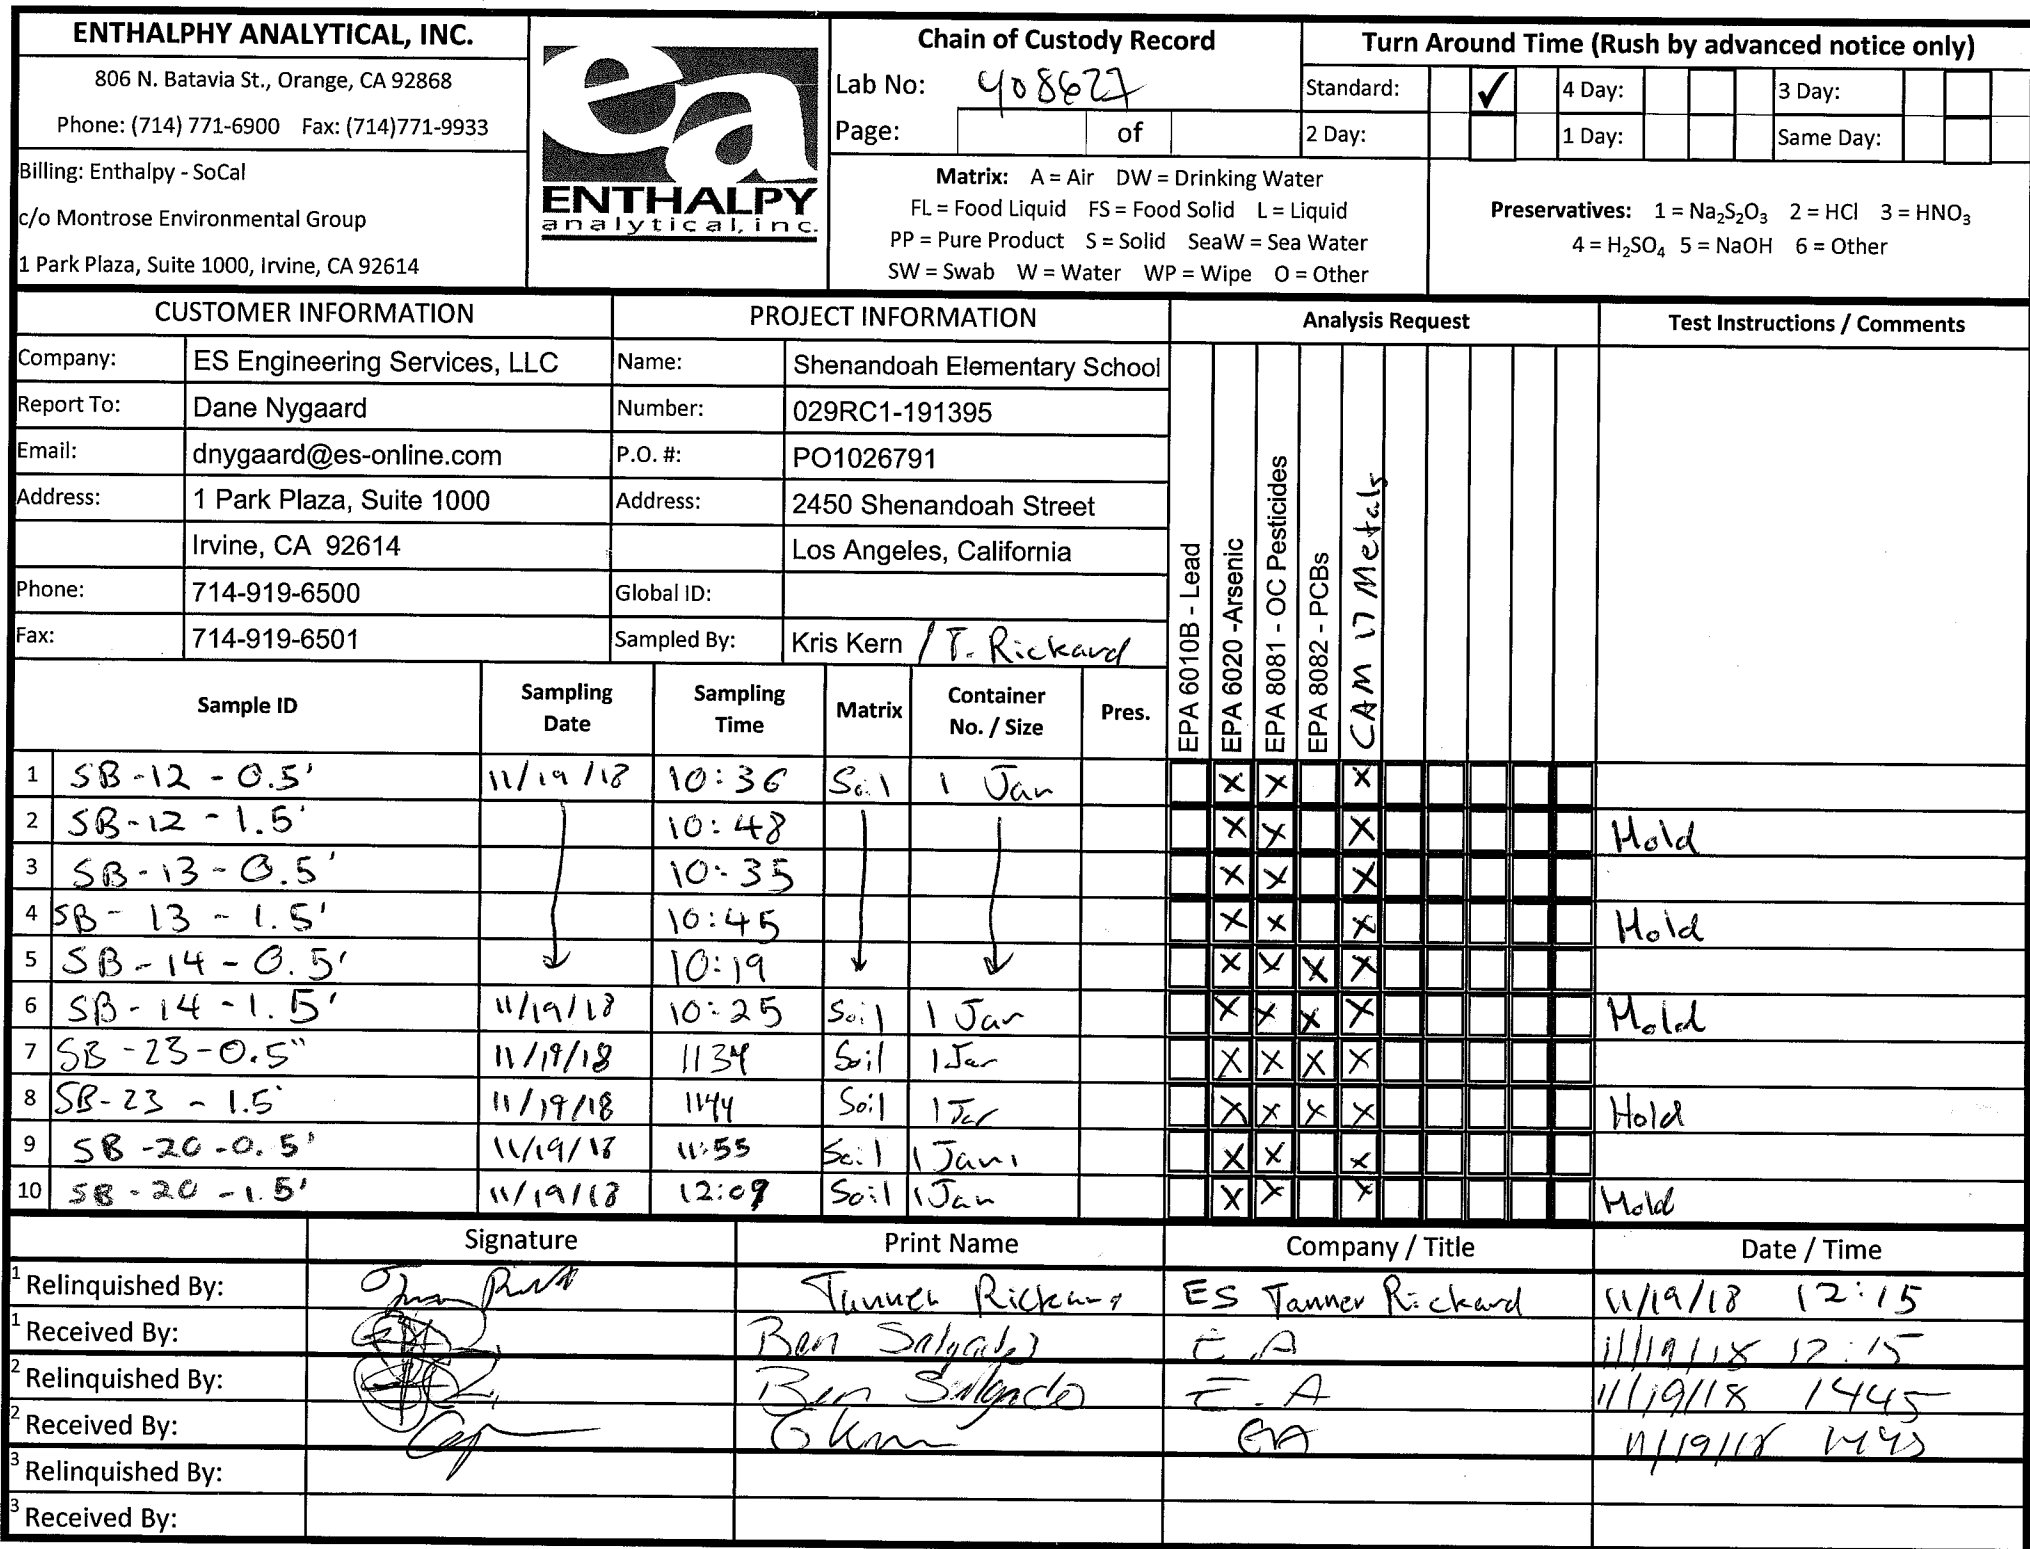 ENTHALPHY ANALYTICAL, INC.
806 N. Batavia St., Orange, CA 92868
Phone: (714) 771-6900 Fax: (714)771-9933
Billing: Enthalpy - SoCal
c/o Montrose Environmental Group
1 Park Plaza, Suite 1000, Irvine, CA 92614
ea
ENTHALPY
analytical, inc.
Chain of Custody Record
Lab No: 408627
Page: of
Matrix: A = Air DW = Drinking Water
FL = Food Liquid FS = Food Solid L = Liquid
PP = Pure Product S = Solid SeaW = Sea Water
SW = Swab W = Water WP = Wipe O = Other
Turn Around Time (Rush by advanced notice only)
Standard: ✓ 4 Day: 3 Day:
2 Day: 1 Day: Same Day:
Preservatives: 1 = Na₂S₂O₃ 2 = HCl 3 = HNO₃
4 = H₂SO₄ 5 = NaOH 6 = Other
CUSTOMER INFORMATION
Company: ES Engineering Services, LLC
Report To: Dane Nygaard
Email: dnygaard@es-online.com
Address: 1 Park Plaza, Suite 1000
Irvine, CA 92614
Phone: 714-919-6500
Fax: 714-919-6501
PROJECT INFORMATION
Name: Shenandoah Elementary School
Number: 029RC1-191395
P.O. #: PO1026791
Address: 2450 Shenandoah Street
Los Angeles, California
Global ID:
Sampled By: Kris Kern / T. Rickard
Analysis Request
EPA 6010B - Lead
EPA 6020 -Arsenic
EPA 8081 - OC Pesticides
EPA 8082 - PCBs
CAM 17 Metals
Test Instructions / Comments
Sample ID Sampling Date Sampling Time Matrix Container No. / Size Pres.
1 SB-12-0.5' 11/19/18 10:36 Soil 1 Jar X X X
2 SB-12-1.5' 10:48 X X X Hold
3 SB-13-0.5' 10:35 X X X
4 SB-13-1.5' 10:45 X X X Hold
5 SB-14-0.5' 10:19 X X X X
6 SB-14-1.5' 11/19/18 10:25 Soil 1 Jar X X X X Hold
7 SB-23-0.5" 11/19/18 1134 Soil 1 Jar X X X X
8 SB-23-1.5' 11/19/18 1144 Soil 1 Jar X X X X Hold
9 SB-20-0.5' 11/19/18 11:55 Soil 1 Jar X X X
10 SB-20-1.5' 11/19/18 12:09 Soil 1 Jar X X X Hold
Signature Print Name Company / Title Date / Time
1 Relinquished By: Tanner Rickard ES Tanner Rickard 11/19/18 12:15
1 Received By: Ben Salgado E.A 11/19/18 12:15
2 Relinquished By: Ben Salgado E.A 11/19/18 1445
2 Received By: EA 11/19/18 1445
3 Relinquished By:
3 Received By: